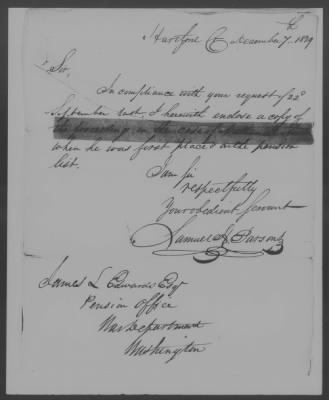 Hartford Ct December 7th 1829
Sir.
In compliance with your request of 22d
September last, I herewith enclose a copy of
the proceedings in the case of
when he was first placed on the pension
list.
I am Sir
respectfully
Your obedient Servant
Samuel Parsons
James L Edwards Esqr
Pension Office
War Department
Washington